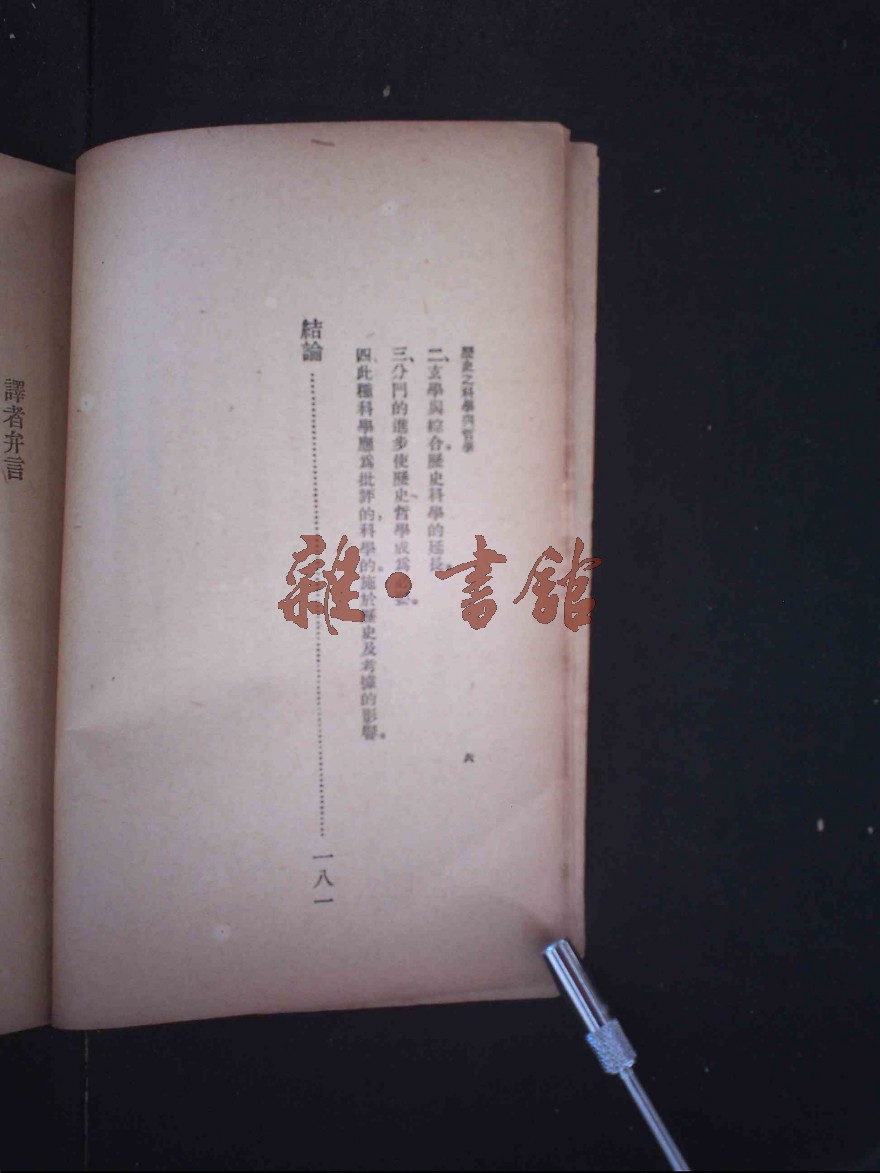 歷史之科學與哲學
六
二、玄學與綜合歷史科學的延長。
三、分門的進步使歷史哲學成爲
四、此種科學應爲批評的科學的施於歷史及考據的影響。
結論……一八一
譯者弁言
雜·書館